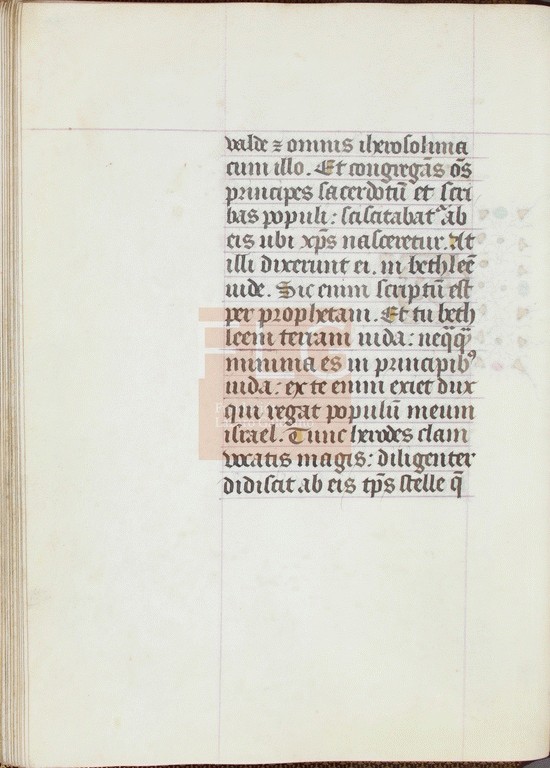 valde ⁊ omnis iherosolima
cum illo. Et congregās os̄
principes sacerdotū et scri
bas populi: sciscitabat᷑ ab
eis ubi xp̄s nasceretur. At
illi dixerunt ei. in bethleē
iude. Sic enim scriptū est
per prophetam. Et tu beth
leem terram iuda: neq̄q̄
minima es in principibꝰ
iuda: ex te enim exiet dux
qui regat populū meum
israel. Tunc herodes clam
vocatis magis: diligenter
didiscit ab eis tp̄s stelle q̄
FLG